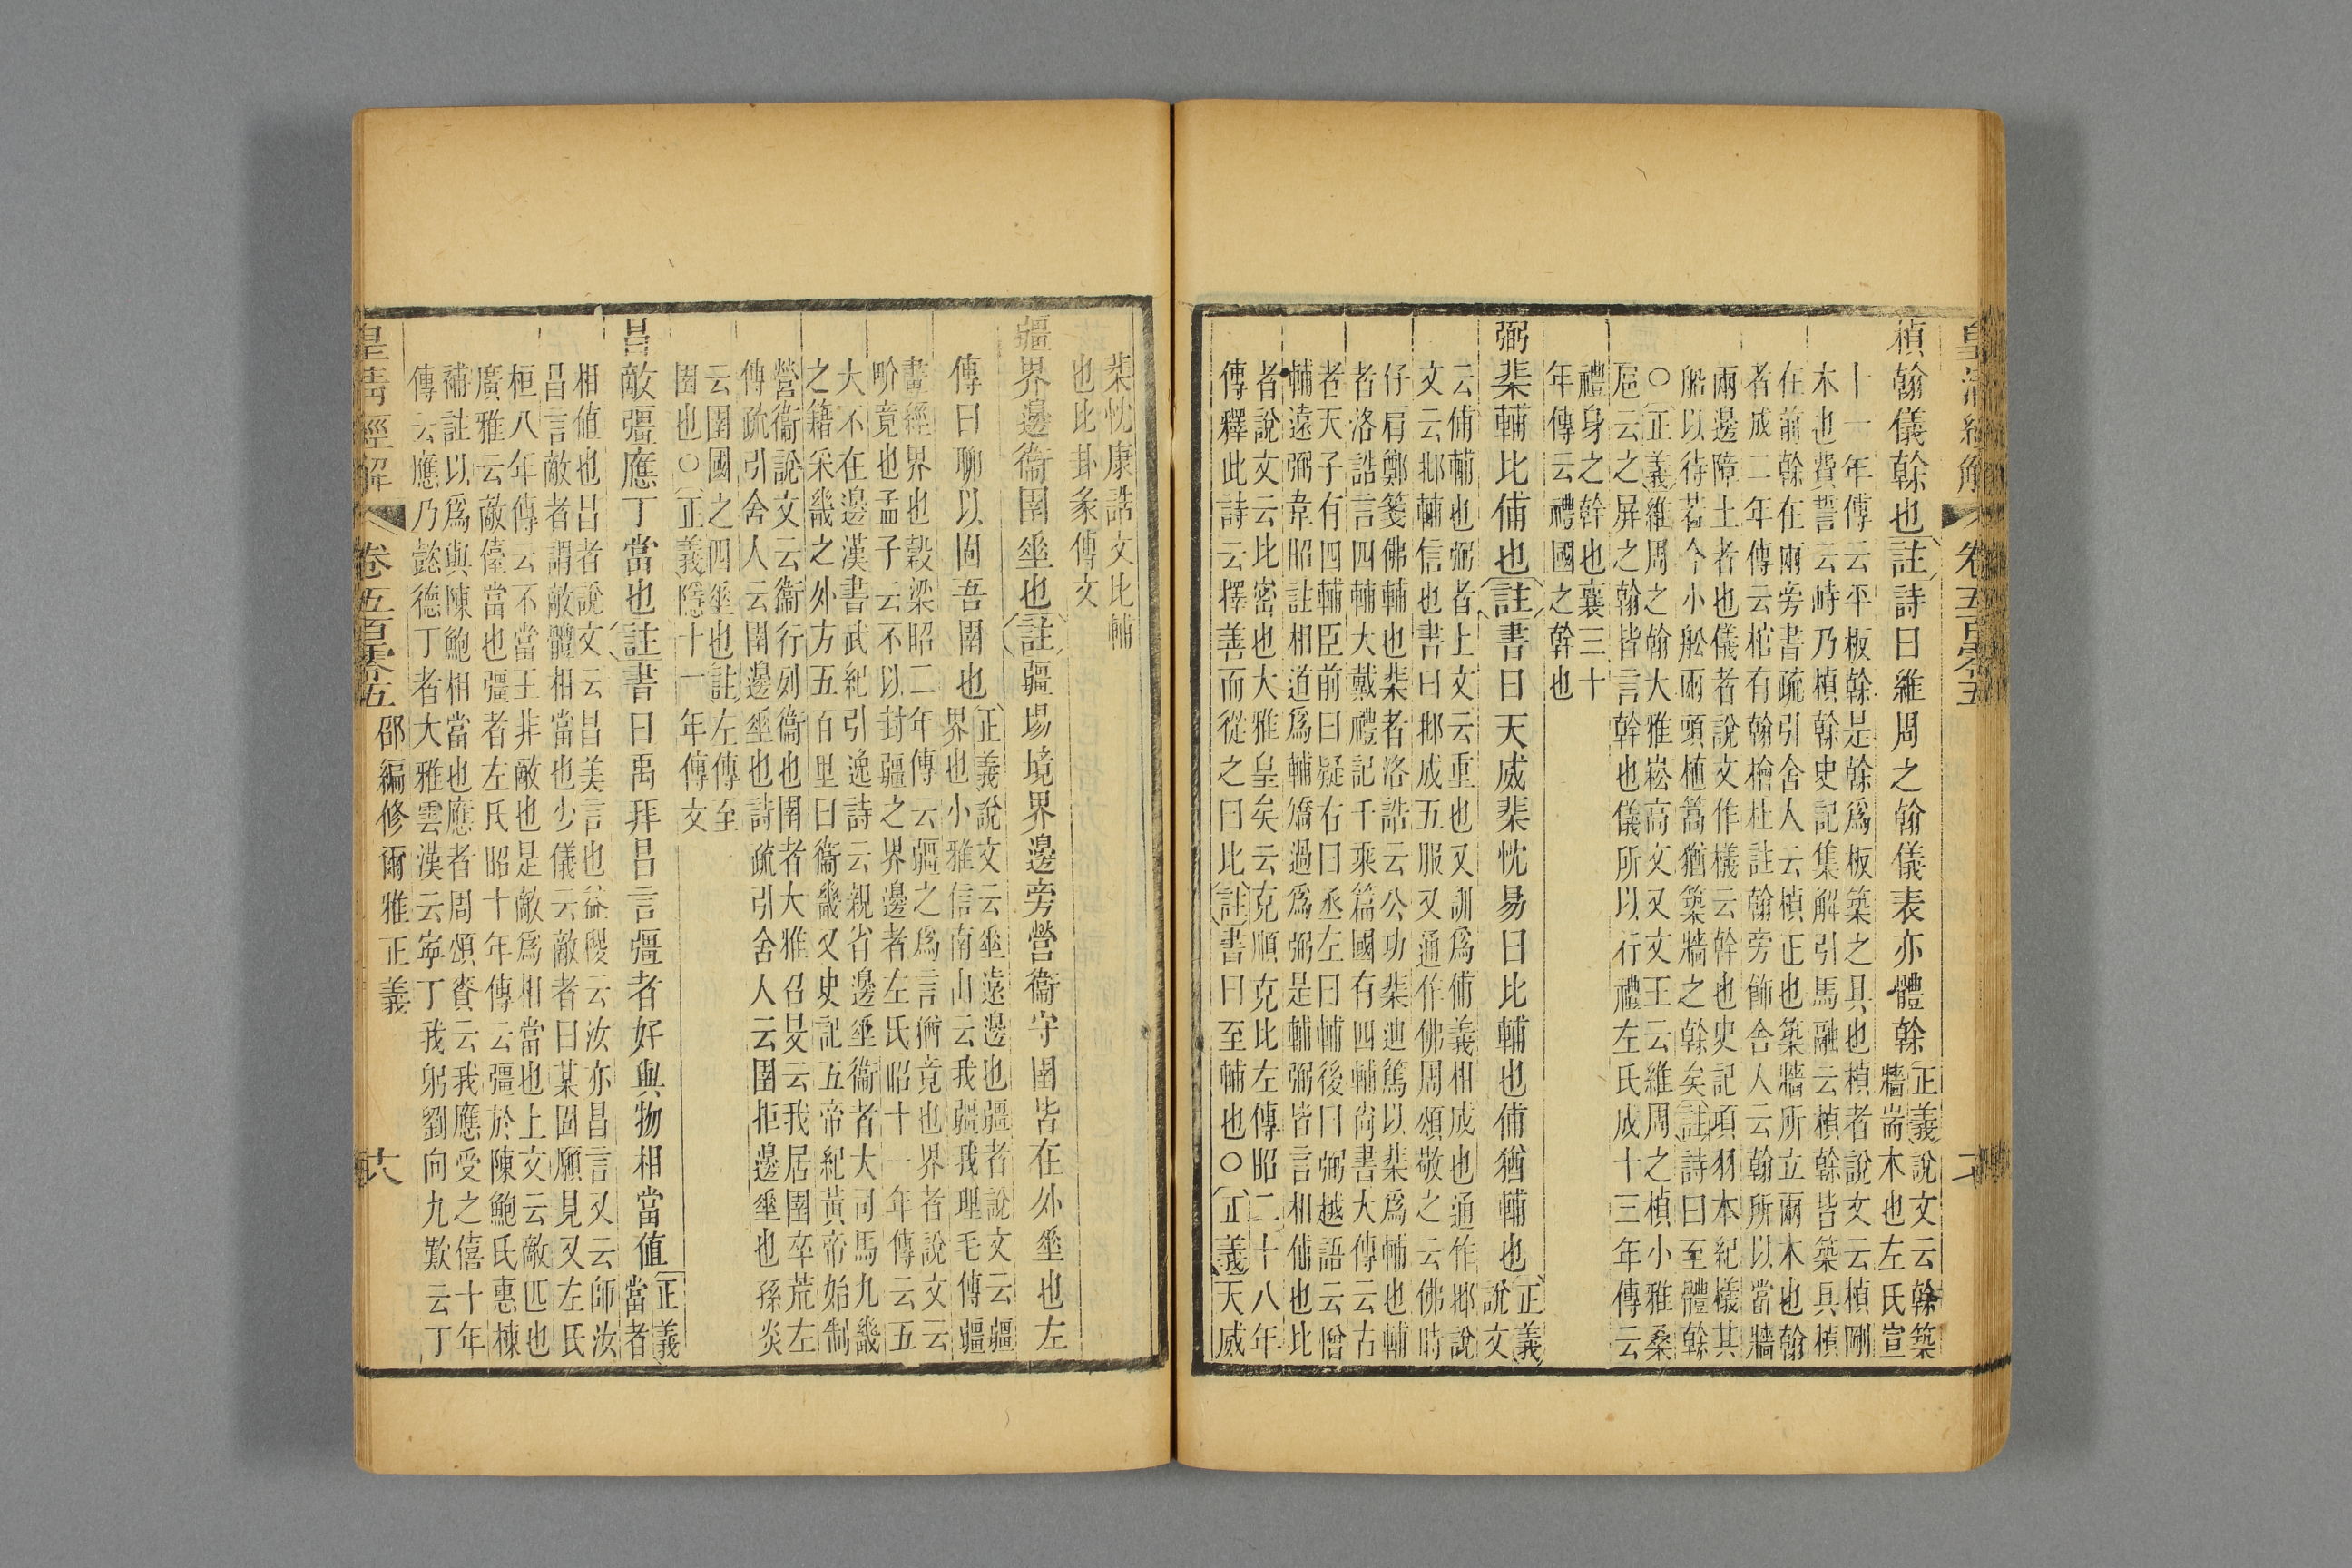 皇清經解 卷五百零五
楨翰儀榦也註詩曰維周之翰儀表亦體榦
正義說文云榦築
牆耑木也左氏宣
十一年傳云平板榦是榦爲板築之具也楨者說文云楨剛
木也費誓云峙乃楨榦史記集解引馬融云楨榦皆築具楨
在前榦在兩旁書疏引舍人云楨正也築牆所立兩木也翰
者成二年傳云棺有翰檜杜註翰旁飾舍人云翰所以當牆
兩邊障土者也儀者說文作檥云幹也史記項羽本紀檥其
船以待若今小舩兩頭植篙猶築牆之榦矣註詩曰至體榦
○正義維周之翰大雅崧高文又文王云維周之楨小雅桑
扈云之屏之翰皆言幹也儀所以行禮左氏成十三年傳云
禮身之幹也襄三十
年傳云禮國之幹也
弼棐輔比俌也註書曰天威棐忱易曰比輔也俌猶輔也
正義
說文
云俌輔也弼者上文云重也又訓爲俌義相成也通作㔻說
文云㔻輔信也書曰㔻成五服又通作佛周頌敬之云佛時
仔肩鄭箋佛輔也棐者洛誥云公功棐迪篤以棐爲輔也輔
者洛誥言四輔大戴禮記千乘篇國有四輔尙書大傳云古
者天子有四輔臣前曰疑右曰丞左曰輔後曰弼越語云憎
輔遠弼韋昭註相道爲輔矯過爲弼是輔弼皆言相俌也比
者說文云比密也大雅皇矣云克順克比左傳昭二十八年
傳釋此詩云擇善而從之曰比註書曰至輔也○正義天威
棐忱康誥文比輔
也比卦彖傳文
疆界邊衞圉垂也註疆場境界邊旁營衞守圉皆在外垂也左
傳曰聊以固吾圉也
正義說文云垂遠邊也疆者說文云疆
界也小雅信南山云我疆我理毛傳疆
畫經界也穀梁昭二年傳云疆之爲言猶竟也界者說文云
畍竟也孟子云不以封疆之界邊者左氏昭十一年傳云五
大不在邊漢書武紀引逸詩云親省邊垂衞者大司馬九畿
之籍采畿之外方五百里曰衞畿又史記五帝紀黃帝始制
營衞說文云衞行列衞也圉者大雅召旻云我居圉卒荒左
傳疏引舍人云圉邊垂也詩疏引舍人云圉拒邊垂也孫炎
云圉國之四垂也註左傳至
圉也○正義隱十一年傳文
昌敵彊應丁當也註書曰禹拜昌言彊者好與物相當值
正義
當者
相值也昌者說文云昌美言也益稷云汝亦昌言又云師汝
昌言敵者謂敵體相當也少儀云敵者曰某固願見又左氏
桓八年傳云不當王非敵也是敵爲相當也上文云敵匹也
廣雅云敵儓當也彊者左氏昭十年傳云彊於陳鮑氏惠棟
補註以爲與陳鮑相當也應者周頌賚云我應受之僖十年
傳云應乃懿德丁者大雅雲漢云寧丁我躬劉向九歎云丁
皇清經解 卷五百零五 十六
邵編修爾雅正義